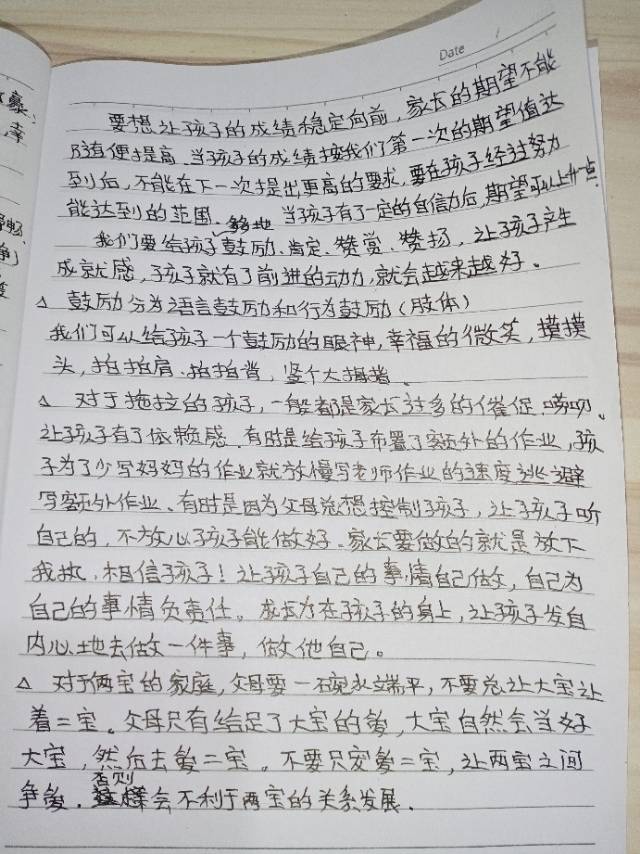 Date
要想让孩子的成绩稳定向前，家长的期望不能
随便提高．当孩子的成绩按我们第一次的期望值达
到后，不能在下一次提出更高的要求，要在孩子经过努力
能达到的范围． 当孩子有了一定的自信力后，期望可以上升一点．
我们要给孩子鼓励．肯定．赞赏．赞扬，让孩子产生
成就感，孩子就有了前进的动力，就会越来越好。
△ 鼓励分为语言鼓励和行为鼓励（肢体）
我们可以给孩子一个鼓励的眼神，幸福的微笑，摸摸
头，拍拍肩．拍拍背，竖个大拇指．
△ 对于拖拉的孩子，一般都是家长过多的催促．唠叨、
让孩子有了依赖感．有时是给孩子布置了额外的作业，孩
子为了少写妈妈的作业就放慢写老师作业的速度逃避
写额外作业、有时是因为父母总想控制孩子，让孩子听
自己的，不放心孩子能做好．家长要做的就是放下
我执，相信孩子！让孩子自己的事情自己做，自己为
自己的事情负责任。成长力在孩子的身上，让孩子发自
内心地去做一件事，做他自己。
△ 对于俩宝的家庭，父母要一碗水端平，不要总让大宝让
着二宝。父母只有给足了大宝的爱，大宝自然会当好
大宝，然后去爱二宝。不要只宠爱二宝，让两宝之间
争爱．否则会不利于两宝的关系发展．